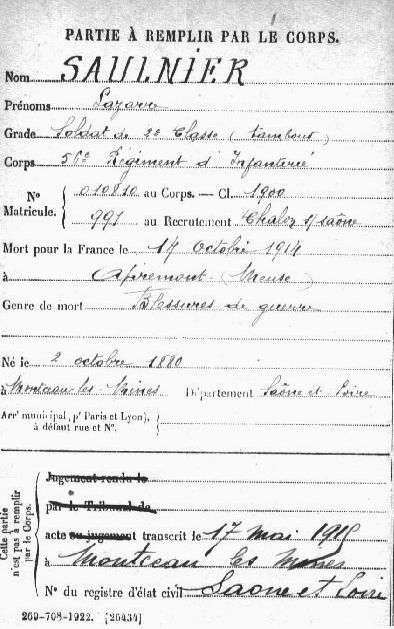 PARTIE À REMPLIR PAR LE CORPS.
Nom SAULNIER
Prénoms Lazare
Grade Soldat de 2e Classe (tambour)
Corps 56e Régiment d'Infanterie
No Matricule. 010810 au Corps. — Cl. 1900
991 au Recrutement Chalon s/ saône
Mort pour la France le 14 octobre 1914
à Apremont (Meuse)
Genre de mort Blessures de guerre
Né le 2 octobre 1880
à Montceau les Mines Département Saône et Loire
Arrt municipal (pr Paris et Lyon),
à défaut rue et No.
Cette partie n'est pas à remplir par le Corps.
Jugement rendu le
par le Tribunal de
acte ou jugement transcrit le 17 mai 1915
à Montceau les Mines
No du registre d'état civil Saone et Loire
269-708-1922. [26434]